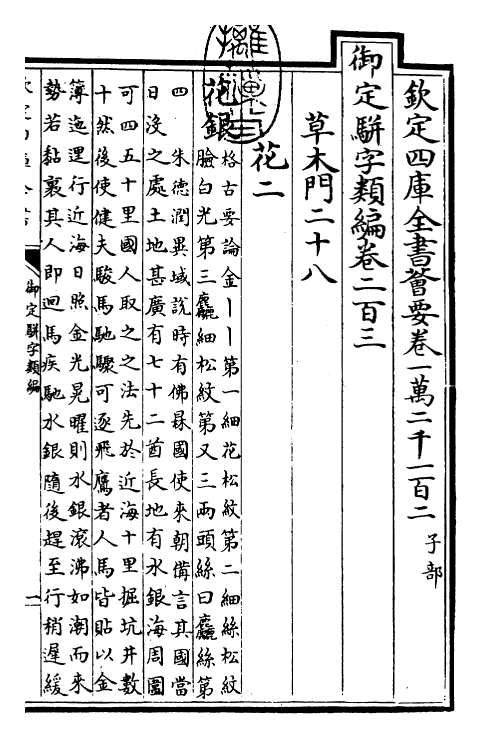 欽定四庫全書薈要卷一萬二千一百二 子部
御定駢字類編卷二百三
草木門二十八
花二
花銀
格古要論金丨丨第一細花松紋第二細絲松紋
臉白光第三麤細松紋第又三兩頭絲曰麤絲第
四 朱德潤異域說時有佛㝷國使來朝備言其國當
日沒之處土地甚廣有七十二酋長地有水銀海周圍
可四五十里國人取之之法先於近海十里掘坑井數
十然後使健夫駿馬馳驟可逐飛鷹者人馬皆貼以金
簿迤邐行近海日照金光晃曜則水銀滾沸如潮而來
勢若黏裹其人即迴馬疾馳水銀隨後趕至行稍遲緩
御定駢字類編
一